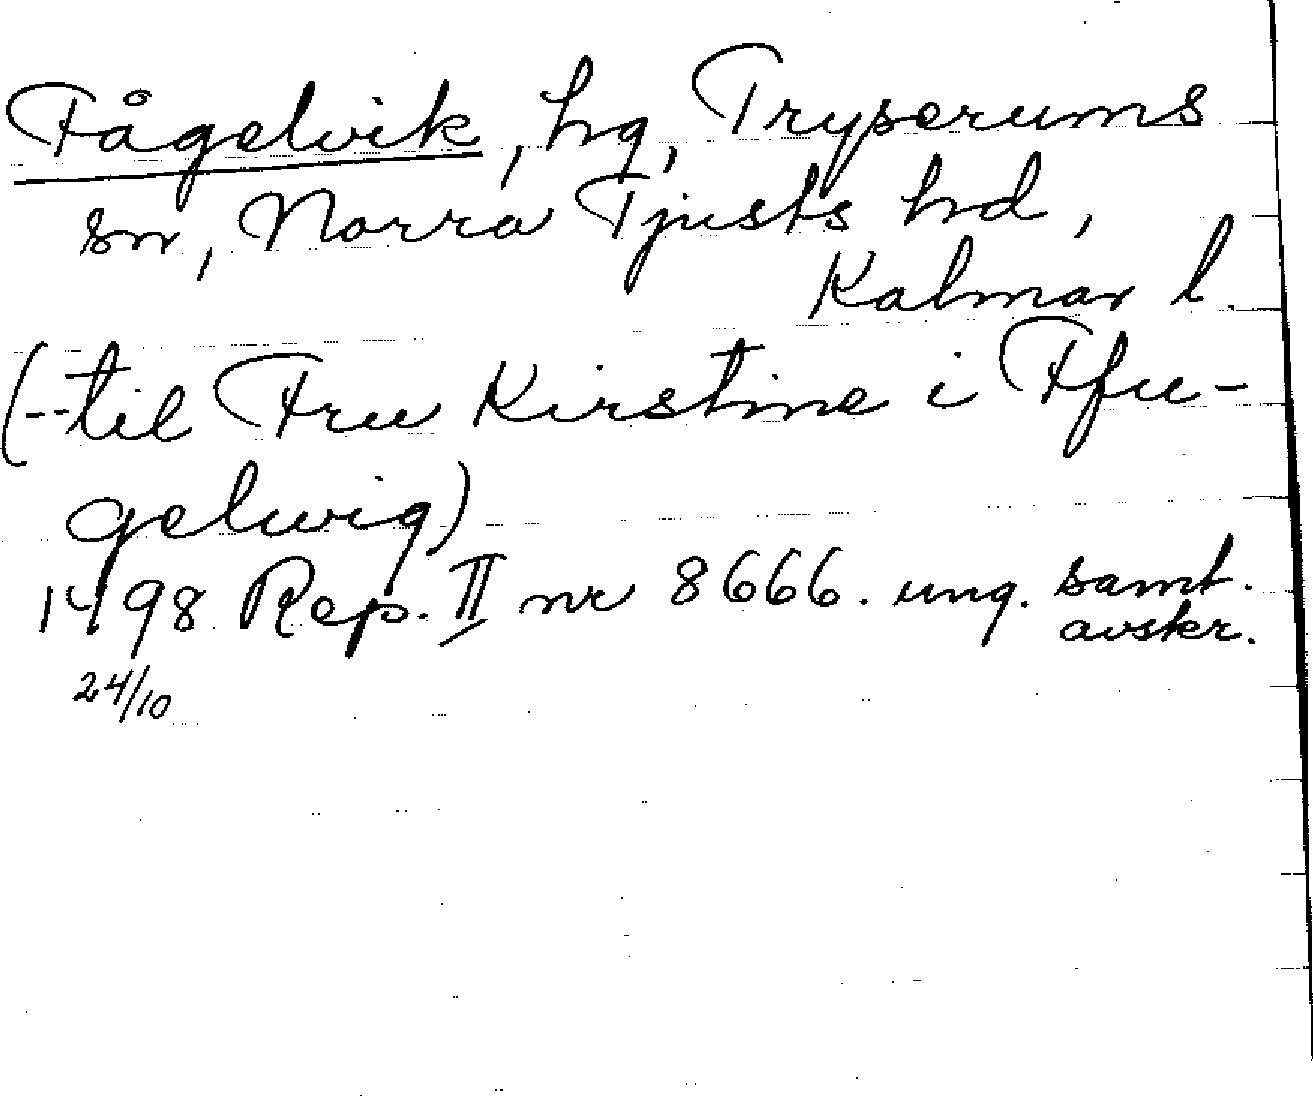 Fågelvik, hg, Tryserums
sn, Norra Tjusts hd,
Kalmar l.
(--til Fru Kirstine i Ffu-
gelwig)
1498 Rep. II nr 8666. ung. samt.
avskr.
24/10